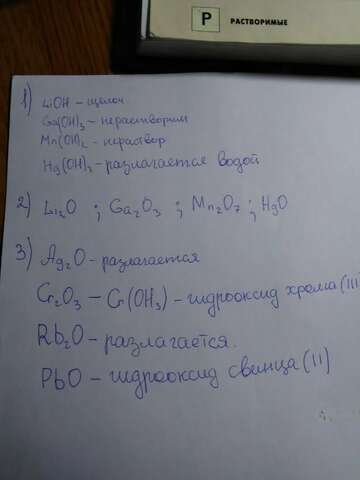 Р РАСТВОРИМЫЕ
1) LiOH – щелоч
Ga(OH)3 – нерастворим
Mn(OH)2 – нераствор
Hg(OH)2 – разлагается водой
2) Li2O ; Ga2O3 ; Mn2O7 ; HgO
3) Ag2O – разлагается
Cr2O3 – Cr(OH3) – гидрооксид хрома (III)
Rb2O – разлагается.
PbO – гидрооксид свинца (II)